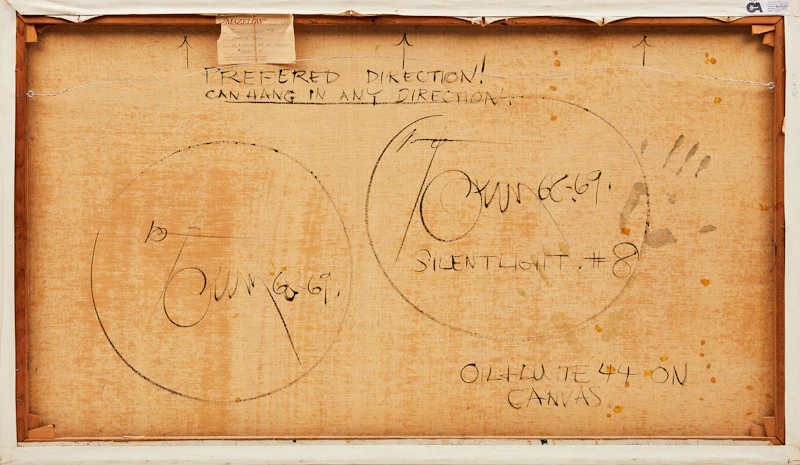 MAZELOW
PREFERED DIRECTION!
CAN HANG IN ANY DIRECTION!
Town 66-69.
SILENTLIGHT. #8
Town 66-69.
OIL + LUCITE 44 ON
CANVAS